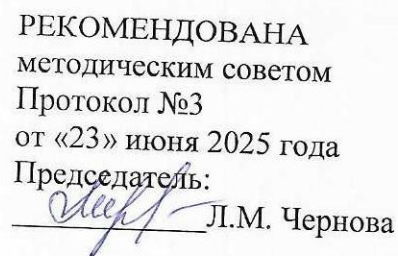 РЕКОМЕНДОВАНА
методическим советом
Протокол №3
от «23» июня 2025 года
Председатель:
____________Л.М. Чернова